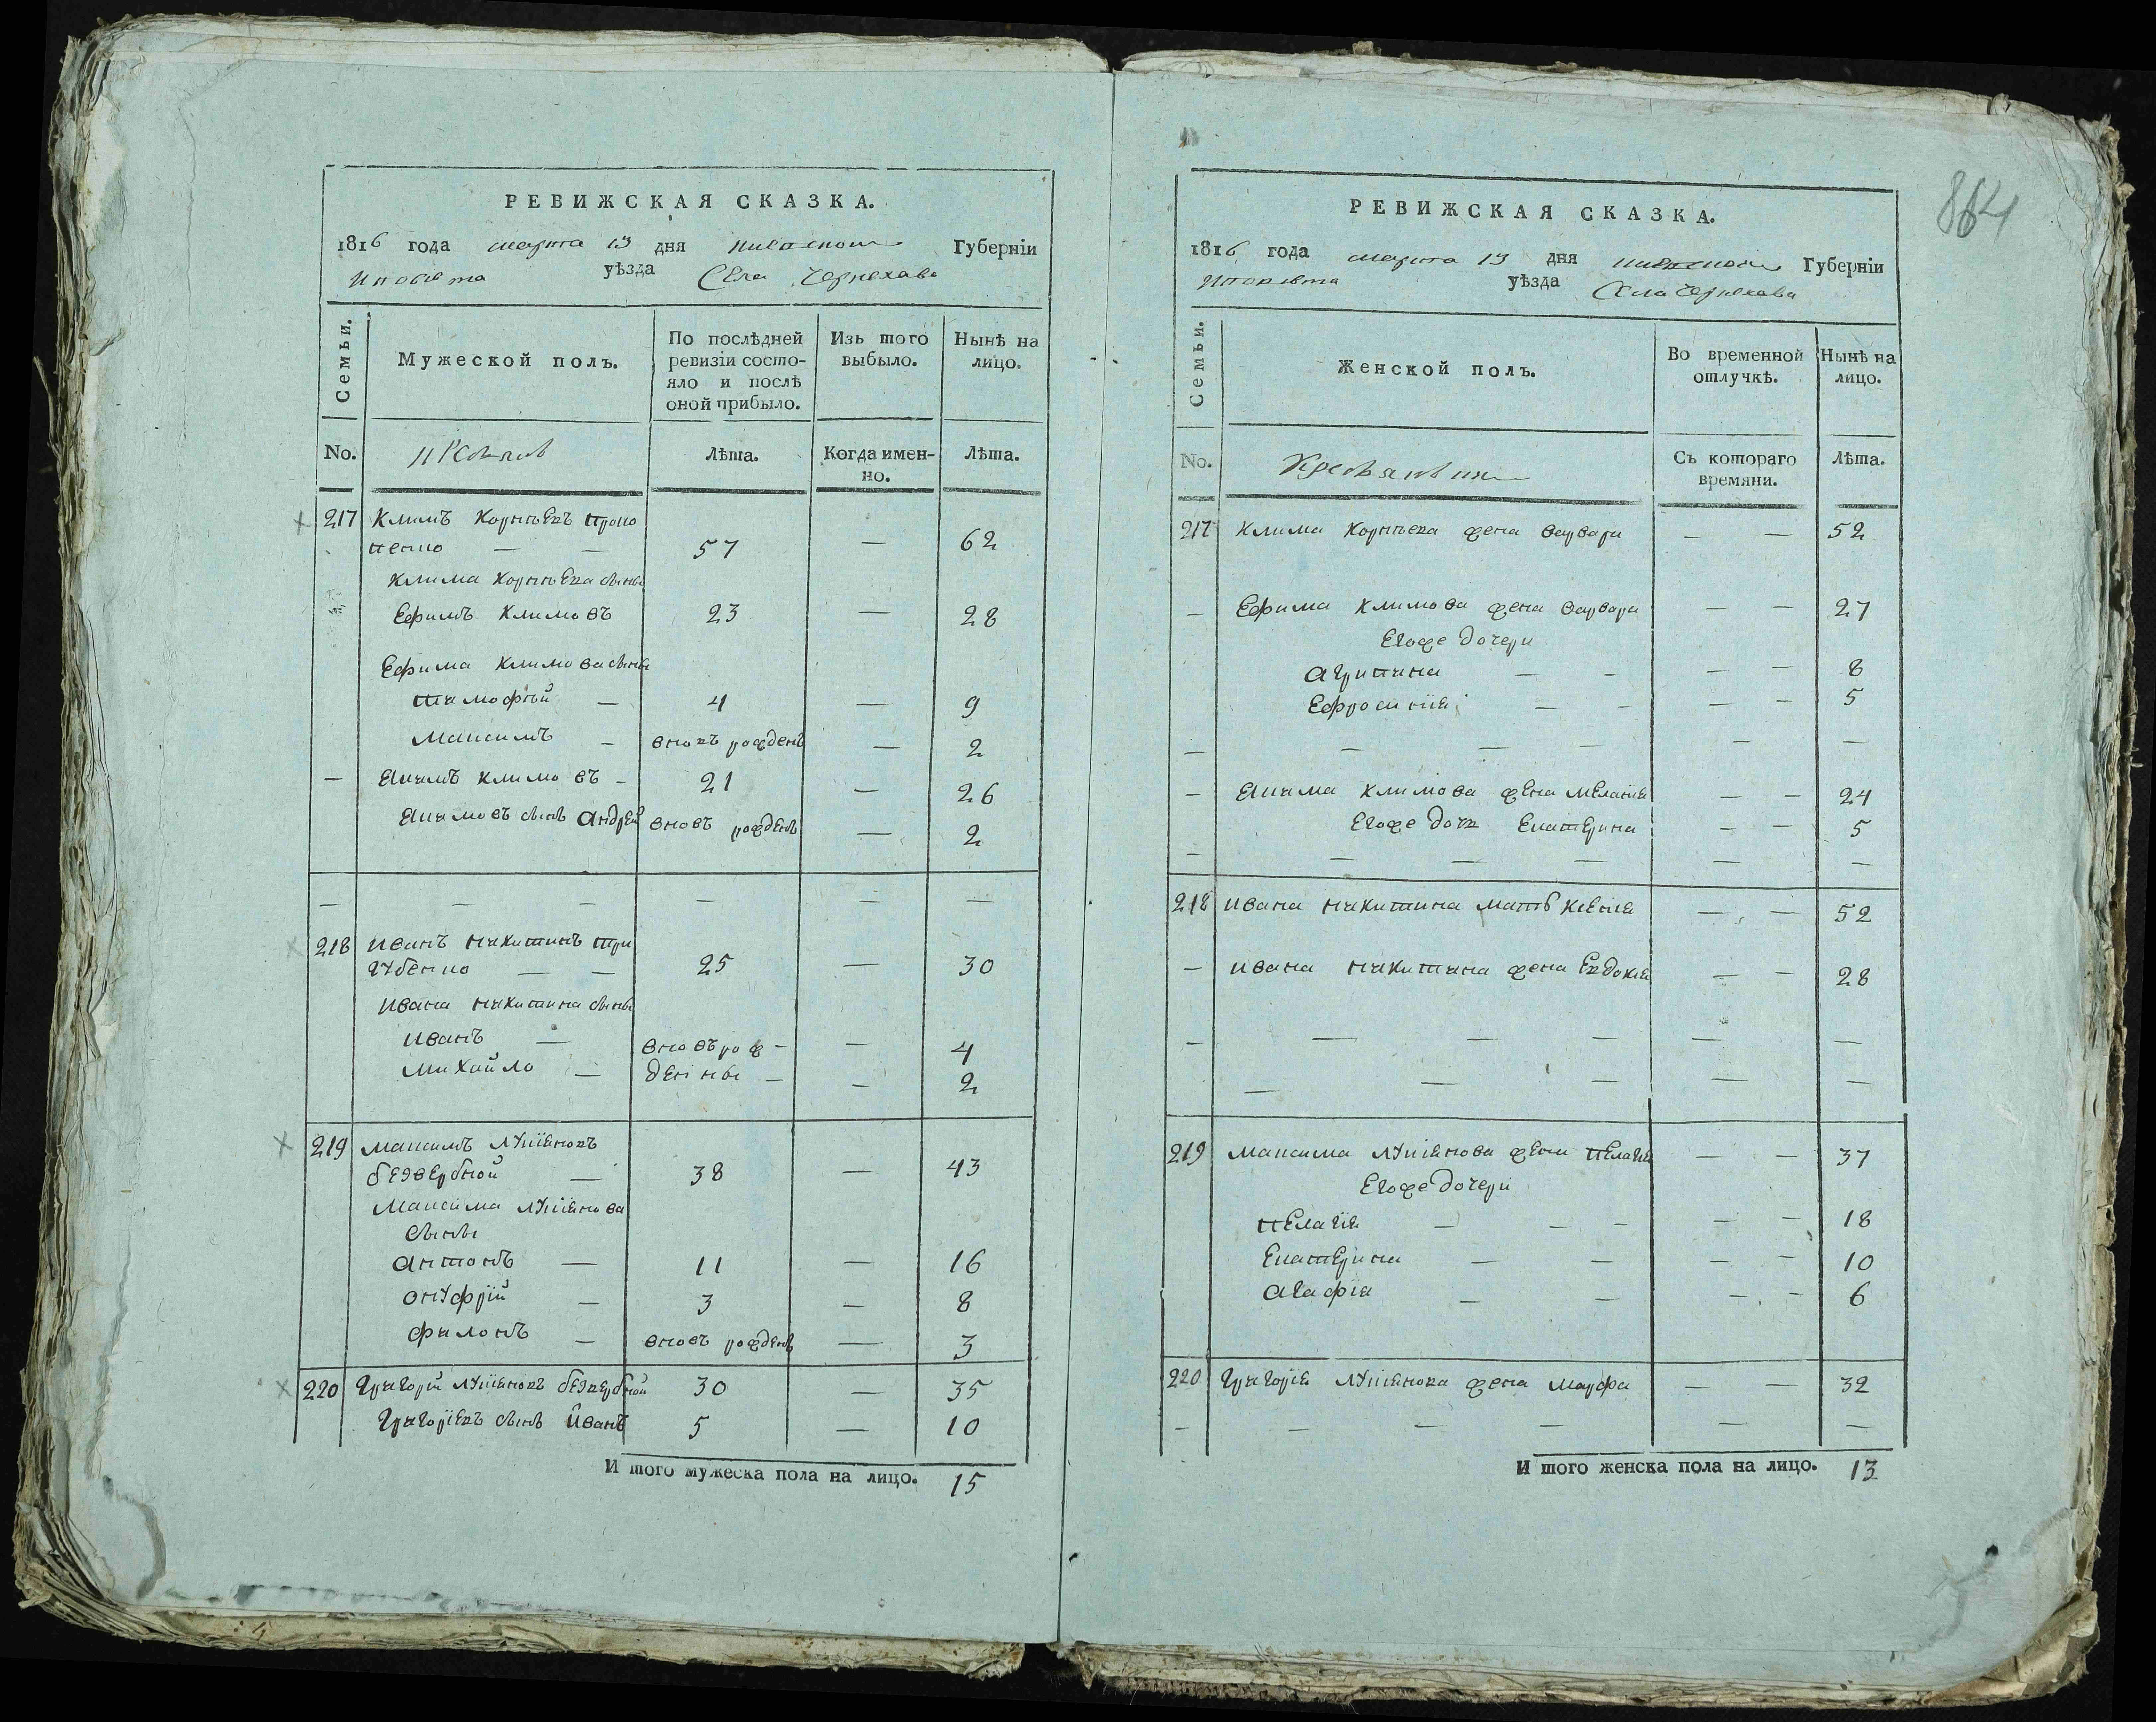 864
РЕВИЖСКАЯ СКАЗКА.
1816 года марта 13 дня Киевской Губерніи
И повета уѣзда Села Чернехава
Семьи.
Мужеской полъ.
По послѣдней
ревизіи состо-
яло и послѣ
оной прибыло.
Изъ того
выбыло.
Нынѣ на
лицо.
No.
Лѣта.
Когда имен-
но.
Лѣта.
217 Климъ Корнѣевъ Проко
пенко — — 57 — 62
Клима Корнѣева сыны
Ефимъ Климовъ 23 — 28
Ефима Климова сыны
Тимофѣй — 4 — 9
Максимъ — вновъ рожденъ — 2
— Якимъ Климовъ - 21 — 26
Якимовъ сынъ Андрей вновъ рожденъ — 2
— — — — — —
218 Иванъ Никитинъ Три
губенко — — 25 — 30
Ивана Никитина сыны
Иванъ — вновъ рож - — 4
Михайло — денны — - 2
219 Максимъ Лукіяновъ
безвербной — 38 — 43
Максима Лукіянова
сыны
Антонъ — 11 — 16
Онуфрій — 3 — 8
Филонъ — вновъ рожденъ — 3
220 Григорій Лукіяновъ безвербной 30 — 35
Григоріевъ сынъ Иванъ 5 — 10
И того мужеска пола на лицо. 15
РЕВИЖСКАЯ СКАЗКА.
1816 года марта 13 дня Киевской Губерніи
И повета уѣзда Села Чернехава
Семьи.
Женской полъ.
Во временной
отлучкѣ.
Нынѣ на
лицо.
No.
Крестьянъ
Съ котораго
времяни.
Лѣта.
217 Клима Корнѣева жена Варвара — — 52
— Ефима Климова жена Варвара — — 27
Егоже дочери
Агрипина — - — — 8
Ефросинія — - — — 5
— — — — — —
— Якима Климова жена Меланія — — 24
Егоже дочь Екатерина - — 5
— — — — — —
218 Ивана Никитина мать Ксенія — — 52
— Ивана Никитина жена Евдокія — — 28
— — — — — —
— — — — —
219 Максима Лукіянова жена Пелагія — — 37
Егоже дочери
Пелагія — — - — — 18
Екатерина — — — - 10
Агафія — — - - 6
220 Григорія Лукіянова жена Марфа — — 32
- — — — — —
И того женска пола на лицо. 13